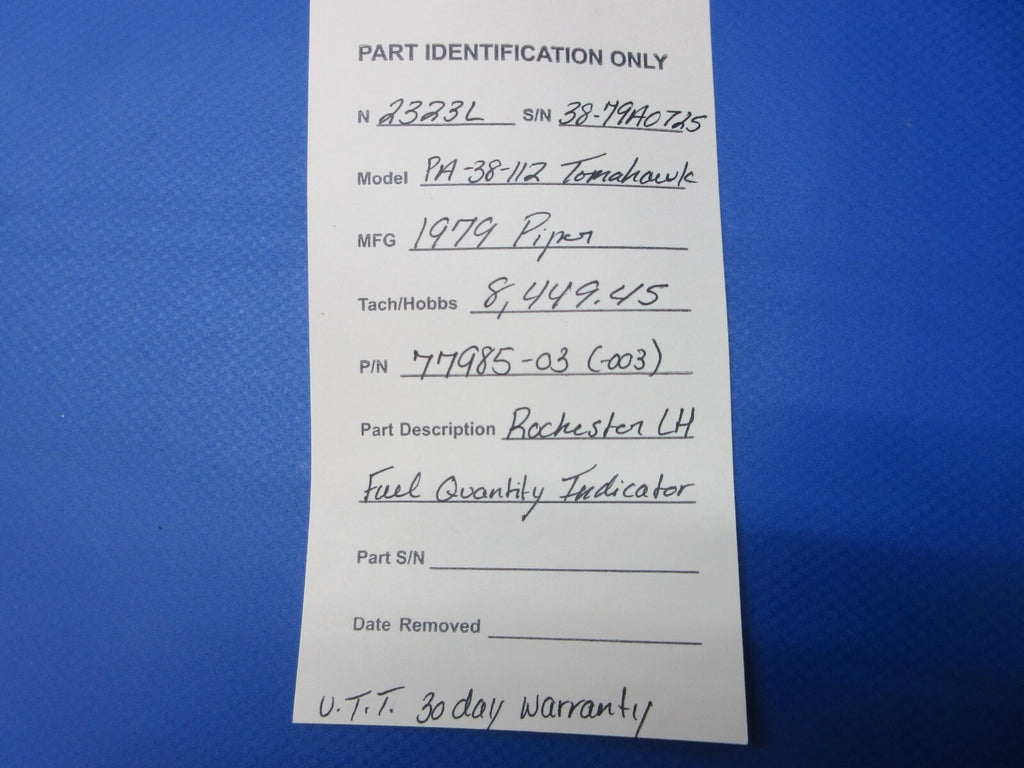 PART IDENTIFICATION ONLY
N 2323L S/N 38-79A0725
Model PA-38-112 Tomahawk
MFG 1979 Piper
Tach/Hobbs 8,449.45
P/N 77985-03 (-003)
Part Description Rochester LH
Fuel Quantity Indicator
Part S/N
Date Removed
U.T.T. 30 day warranty